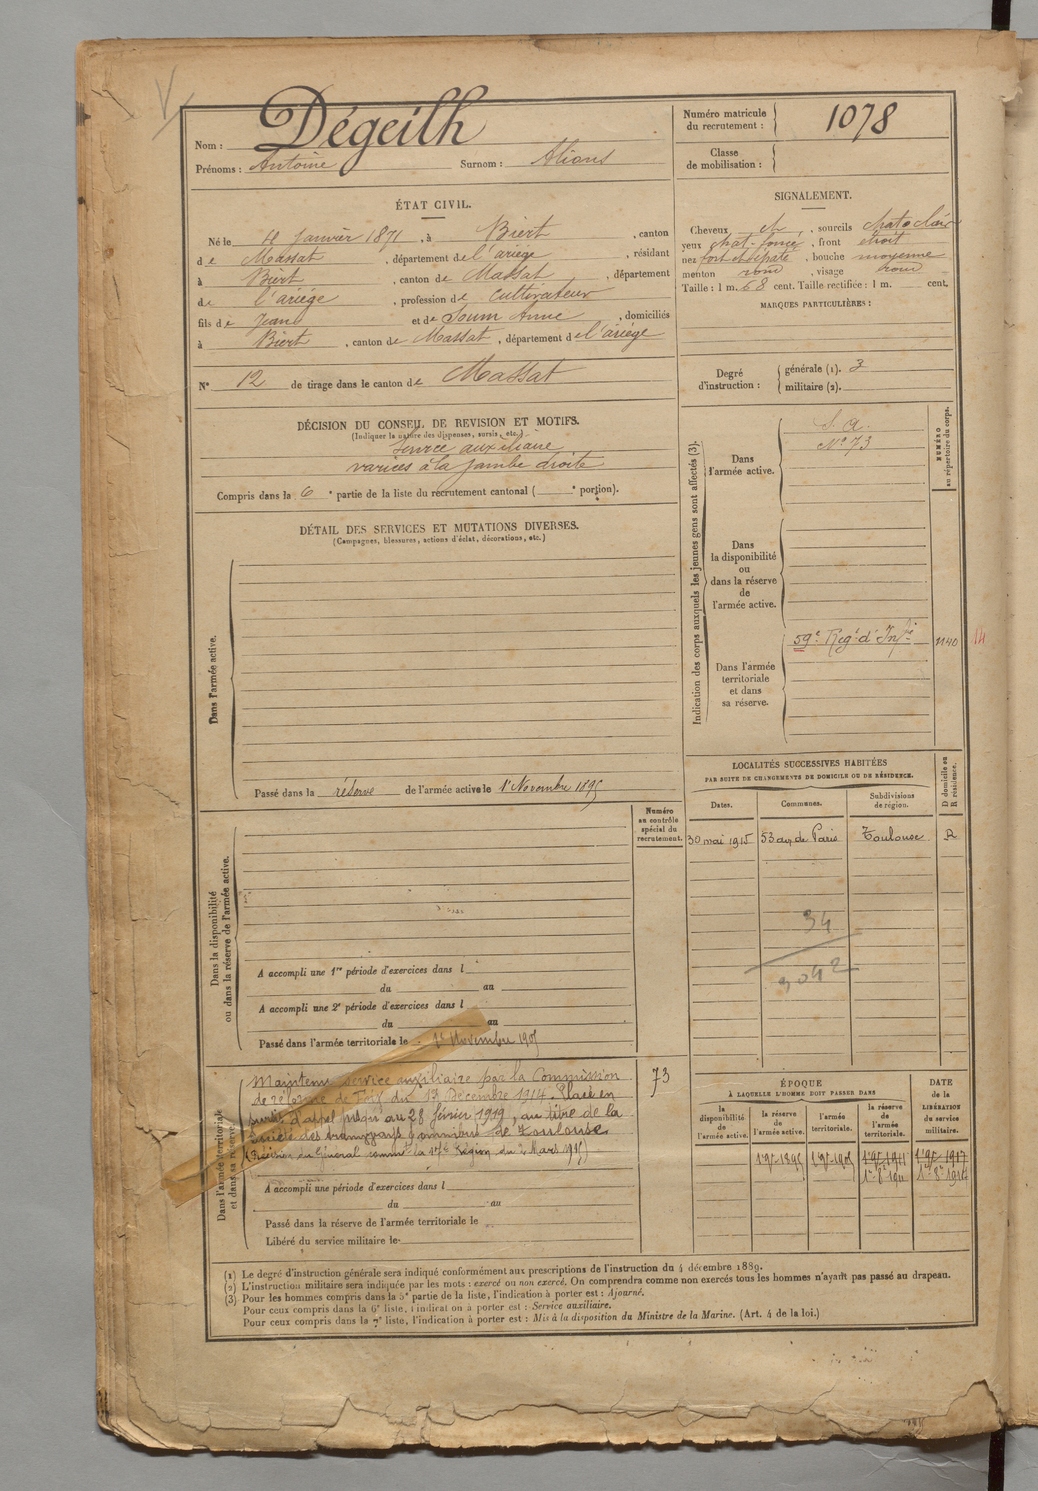 Nom : Dégeilh
Prénoms : Antoine Surnom : Alions
Numéro matricule du recrutement : 1078
Classe de mobilisation :
ÉTAT CIVIL.
Né le 18 Janvier 1871, à Biert, canton
de Massat, département de l'ariége, résidant
à Biert, canton de Massat, département
de l'ariége, profession de Cultivateur
fils de Jean et de Soum Anne, domiciliés
à Biert, canton de Massat, département de l'ariége
N° 12 de tirage dans le canton de Massat
SIGNALEMENT.
Cheveux ch, sourcils chat clair
yeux chat. foncé, front étroit
nez fort et épaté, bouche moyenne
menton rond, visage rond
Taille : 1 m. 68 cent. Taille rectifiée : 1 m. cent.
MARQUES PARTICULIÈRES :
Degré d'instruction : générale (1). 3
militaire (2).
DÉCISION DU CONSEIL DE REVISION ET MOTIFS.
(Indiquer la nature des dispenses, sursis, etc.)
Service auxiliaire
varices à la jambe droite
Compris dans la 6e partie de la liste du recrutement cantonal ( e portion).
DÉTAIL DES SERVICES ET MUTATIONS DIVERSES.
(Campagnes, blessures, actions d'éclat, décorations, etc.)
Dans l'armée active.
Passé dans la réserve de l'armée active le 1er Novembre 1895
Indication des corps auxquels les jeunes gens sont affectés (3).
NUMÉRO au répertoire du corps.
Dans l'armée active.
S. a.
N° 73
Dans la disponibilité ou dans la réserve de l'armée active.
Dans l'armée territoriale et dans sa réserve.
59e Regt d'Infie
1140
14
LOCALITÉS SUCCESSIVES HABITÉES
PAR SUITE DE CHANGEMENTS DE DOMICILE OU DE RÉSIDENCE.
Dates. Communes. Subdivisions de région. D domicile ou R résidence.
30 mai 1915 53 av. de Paris Toulouse R
34
3042
Numéro au contrôle spécial du recrutement.
Dans la disponibilité ou dans la réserve de l'armée active.
A accompli une 1re période d'exercices dans l
du au
A accompli une 2e période d'exercices dans l
du au
Passé dans l'armée territoriale le 1er Novembre 1905
73
Dans l'armée territoriale et dans sa réserve.
Maintenu service auxiliaire par la Commission
de réforme de Foix du 17 Décembre 1914. Placé en
sursis d'appel jusqu'au 28 février 1919, au titre de la
Société des transports omnibus de Toulouse
(Décision du Général commt la 17e Région du 2 Mars 1915)
A accompli une période d'exercices dans l
du au
Passé dans la réserve de l'armée territoriale le
Libéré du service militaire le
ÉPOQUE
À LAQUELLE L'HOMME DOIT PASSER DANS
la disponibilité de l'armée active. la réserve de l'armée active. l'armée territoriale. la réserve de l'armée territoriale.
DATE de la LIBÉRATION du service militaire.
1er 9bre 1895 1er 9bre 1905 1er 9bre 1911 1er 9bre 1917
(1) Le degré d'instruction générale sera indiqué conformément aux prescriptions de l'instruction du 4 décembre 1889.
(2) L'instruction militaire sera indiquée par les mots : exercé ou non exercé. On comprendra comme non exercés tous les hommes n'ayant pas passé au drapeau.
(3) Pour les hommes compris dans la 5e partie de la liste, l'indication à porter est : Ajourné.
Pour ceux compris dans la 6e liste, l'indication à porter est : Service auxiliaire.
Pour ceux compris dans la 7e liste, l'indication à porter est : Mis à la disposition du Ministre de la Marine. (Art. 4 de la loi.)